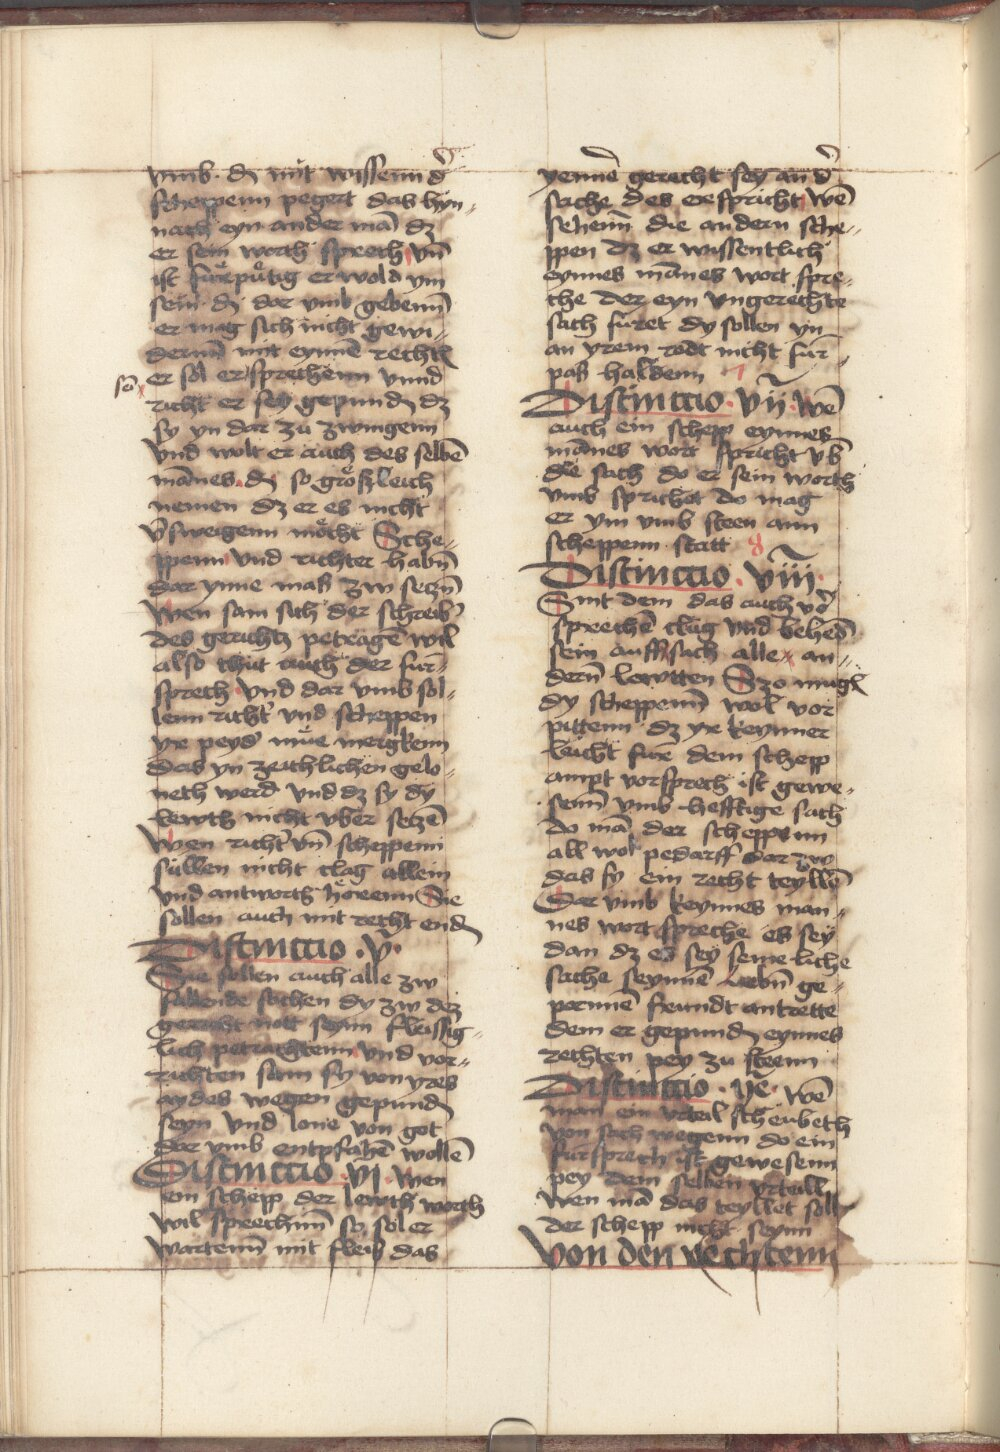 vmb. dy mit wissenn d
scheppenn pegert das hyn-
nach eyn ander mā dz
er sein worth sprech vn̄
ist fürpütig er wold ym
sein dy dar vmb gebenn
er mag sich nicht gewi-
dernn mit eynnē recht
so er sol ersprechenn vnnd
richt er sey gepunden dz
sy yn dar zu zwingenn
vnd wolt er auch des selbē
mānes dy so größleich
nemen dz er es nicht
v̄sweigenn möcht Sche-
ppenn vnd richter habn̄
dar ynne mass zw setzn̄
Wen sam sich der schreib
des gerichtz petragē wil
also thut auch der fur-
sprech vnd dar vmb sol-
lenn richt vnd scheppen
yr peyd müe meigkenn
das yn zeichlichen gelo-
neth werd vnd dz sy dy
lewth nicht vber setzē
Wen richt vn̄ scheppenn
süllen nicht clag allein
vnd antworth hörenn Sie
sollen auch mit recht enden
Distinctio . v.
Sie sollen auch alle zw
fallende sachen dy zw dez
gericht nott seynn fleissig-
lich petrachtenn vnd vor-
richten sam sy von yres
aydes wegen gepunden
seyn vnd lone von got
dar vmb entpfahē wollē
Distinctio . vi . Wen
ein schepp der lewth worth
wil sprechinn so sol er
wartenn mit fleiss das
yenner gerecht sey an d
sache des er spricht Wē
sehenn die andern sche-
ppen dz er wissentlich
eynnes mānes wort spre-
che der eyn vngerechte
sach füret dy sollen yn
an yrem rodt nicht für-
pas haldenn
Distinctio . vii . Wē
auch ein schepp eynnes
mānes wort spricht vb
die sach do er sein worth
vmb spricht do mag
er ym vmb steen ann
scheppenn statt 8
Distinctio . viii .
Sint dem das auch vō
sprechē clug vnd behēd
sein auff sach alle an-
dernn lewtten Szo mugen
dy scheppenn wol vor
pittenn dz yr keynner
leicht fure dem schepp
ampt vorsprech ist gewe-
senn vmb hefftige sach
do mā der scheppenn
all wol pedarff dar zw
das sy ein recht teyllē
Dar vmb keynnes man-
nes wort spreche es sey
dan dz es sey semeliche
sache seynnē liebn̄ ge-
pornnē freundt antrette
dem er gepunden eynnes
rechten pey zu steenn
Distinctio . ix . Wē
man ein vrteil scheubeth
von sach wegenn do ein
fursprech ist gewesenn
pey dem selben vrteill
Wen mā das teyllet soll
der schepp nicht seynn
Von den rechtenn